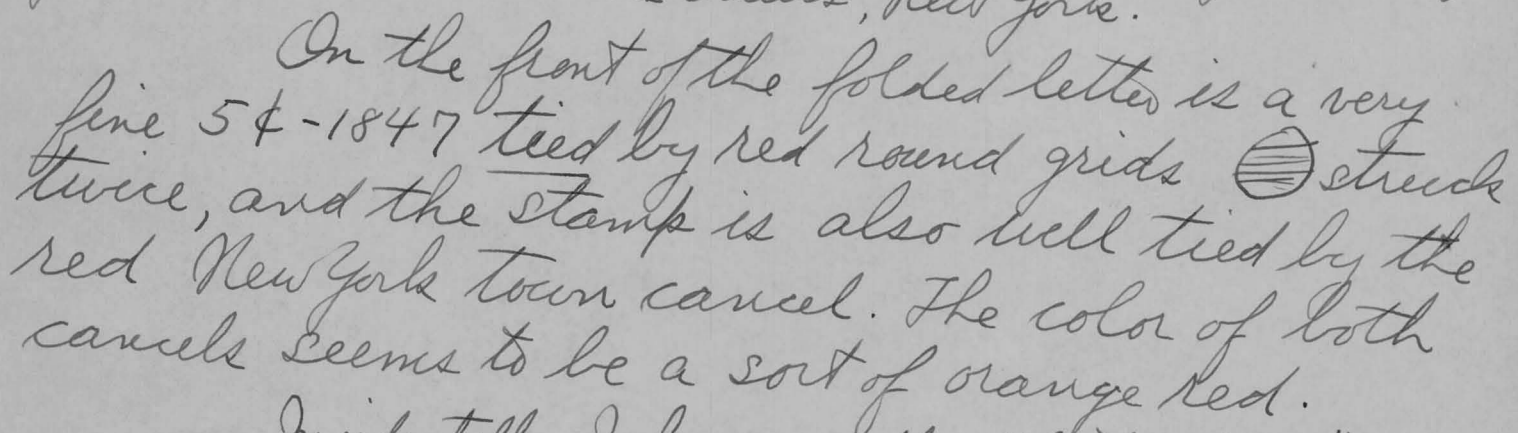 , New York.
On the front of the folded letter is a very
fine 5¢-1847 tied by red round grids struck
twice, and the stamp is also well tied by the
red New York town cancel. The color of both
cancels seems to be a sort of orange red.